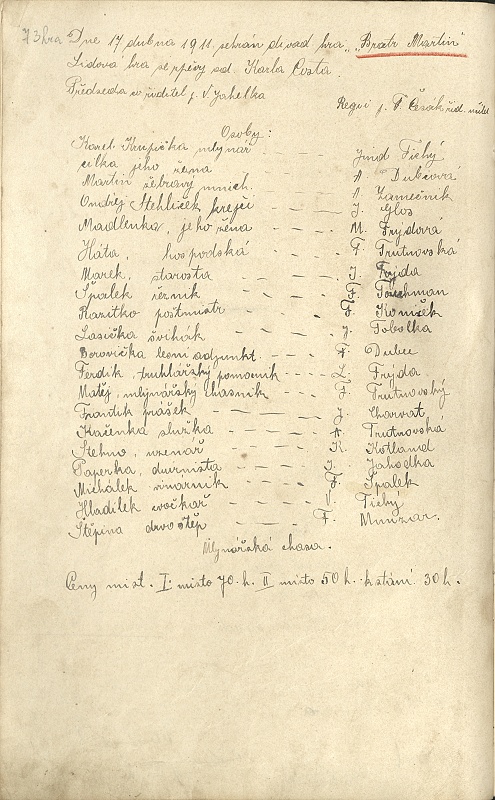 73 hra Dne 17 dubna 1911 sehrán divad. hra „Bratr Martin“
Lidová hra se zpěvy od. Karla Costa.
Předseda a ředitel p. V Jahelka Regii p. F. Česák říd. učitel
Osoby:
Karel Krupička mlynář — — — Jind Tichý
cilka jeho žena — — — A Dubcová
Martin žebravý mnich. — — A Zámečník
Ondřej Stehlíček krejčí — — — J. Glos
Madlenka, jeho žena — — — M. Frýdová
Háta, hospodská — — — F. Trutnovská
Marek, starosta — — — J. Frýda
Špalek řezník — — — F. Teichman
Razítko poštmistr — — — F. Koníček
Lasička švihák — — — J. Tobolka
Borovička lesní adjunkt. — — — F. Dubec
Ferdík, truhlářský pomocník — — — L. Frýda
Matěj, mlynářský chasník — — — F. Trutnovský
Frantík prášek — — — J. Charvat,
Kačenka služka — — — A. Trutnovská
Stehno, uzenář — — — K. Kotland
Paperka, diurnista — — — J. Jahodka
Michálek vinárník — — — F. Špalek
Hladílek cvočkař — — — V. Tichý
Štěpina drvoštěp — — — F. Munzar.
Mlynářská chasa.
Ceny míst. I. místo 70. h. II místo 50 h. k stání. 30 h.